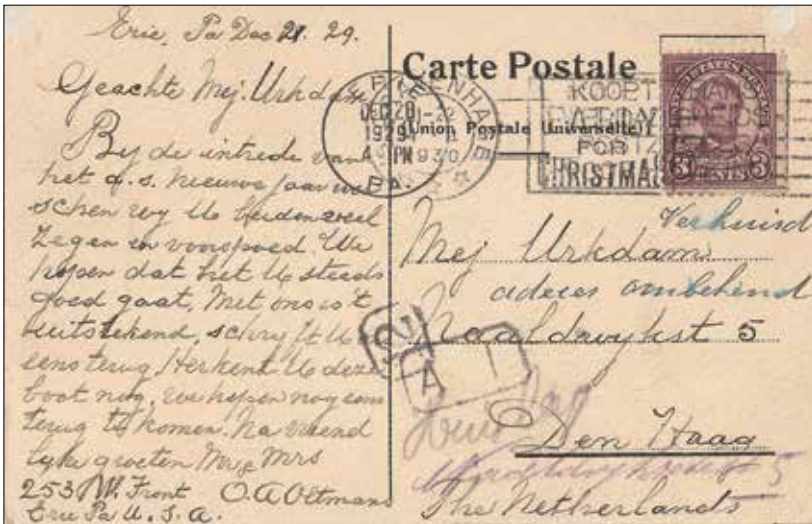 Erie, Pa Dec 21. 29.
Geachte Mej. Urkdam
By de intrede van
het a.s. nieuwe jaar we
schen wy U beiden veel
Zegen en voorspoed. We
hopen dat het U steeds
goed gaat, Met ons is't
uitstekend, schryft U
eens terug. Herkent U deze
boot nog, we hopen nog eens
terug te komen. Na vriend
lyke groeten Mr & Mrs
253 W. Front O. A. Oltmans
Erie Pa U.S.A.
Carte Postale
(Union Postale Universelle)
ERIE
DEC 28
4 PM
1929
PA.
'S GRAVENHAGE
1930
KOOPT
FOR
CHRISTMAS
UNITED STATES POSTAGE
3 CENTS 3
Verhuisd
Mej Urkdam
adres onbekend
Naaldwykst 5
Den Haag
The Netherlands